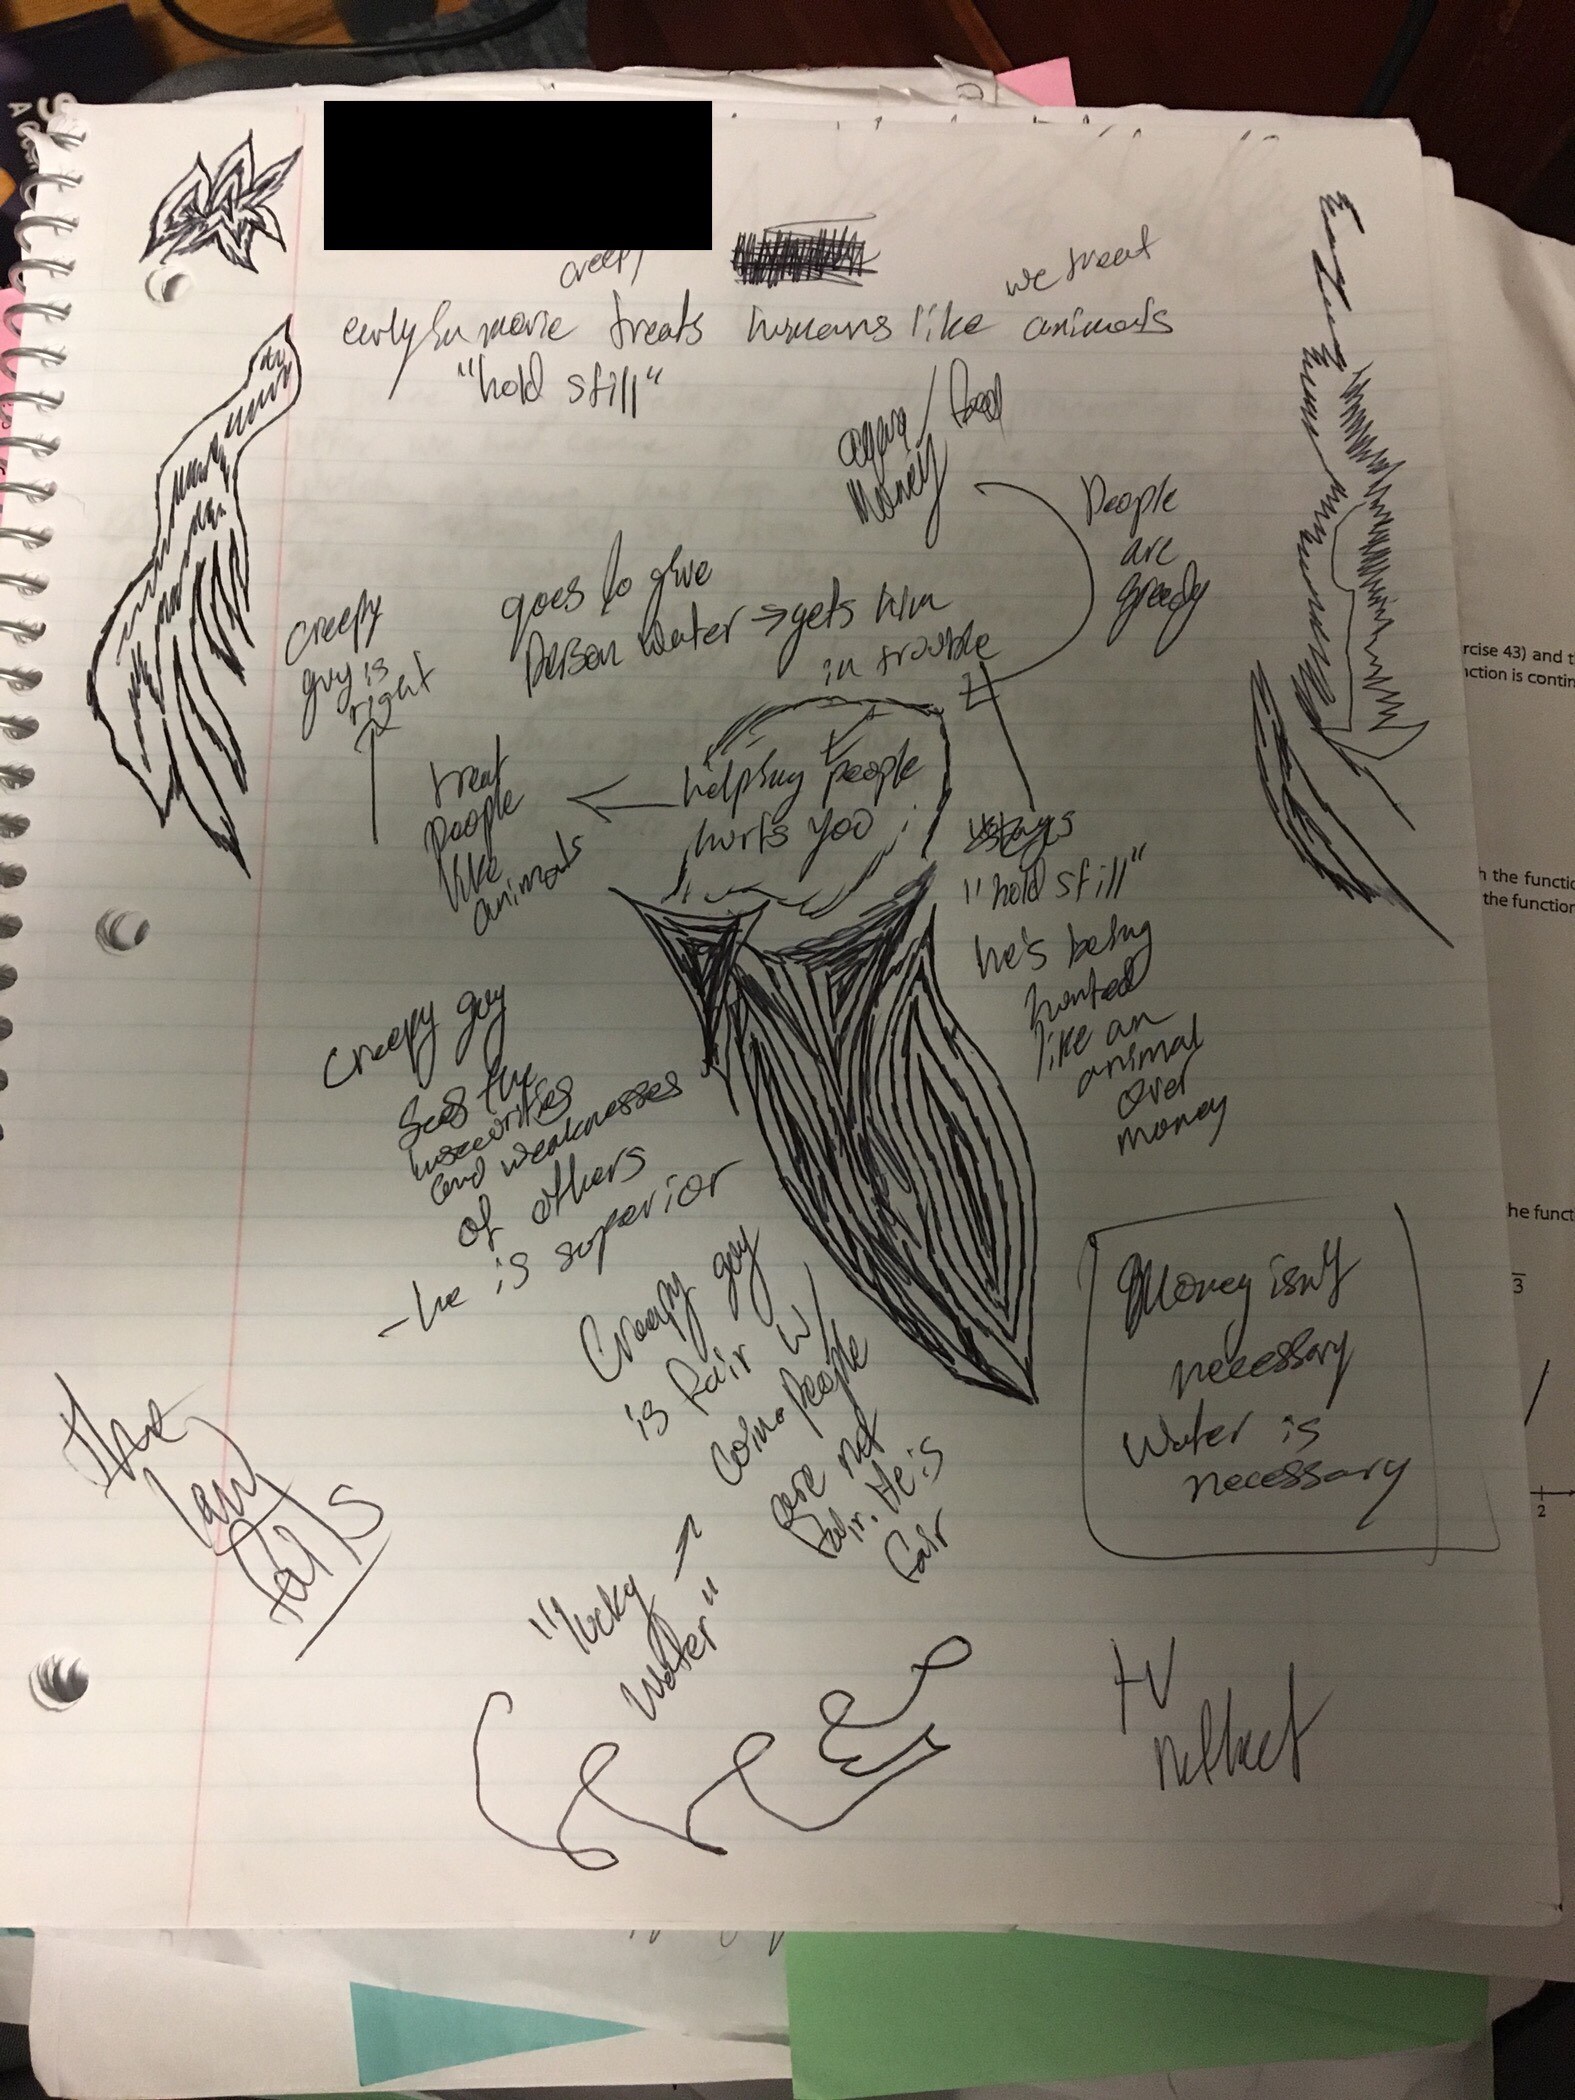 creepy
we treat
early in movie treats humans like animals
"hold still"
again / food
money
People
are
greedy
goes to give
person water → gets him
in trouble
creepy
guy is
right
helping people
hurts you
treat
people
like
animals
"hold still"
he's being
hunted
like an
animal
over
money
creepy guy
sees the
insecurities
and weaknesses
of others
- he is superior
Creepy guy
is fair w/
coin. People
are not
fair. He is
fair
Money isn't
necessary
Water is
necessary
The
law
fails
"lucky →
water"
tv
reflect
rcise 43) and t
nction is contin
h the functio
the function
he funct
3
2